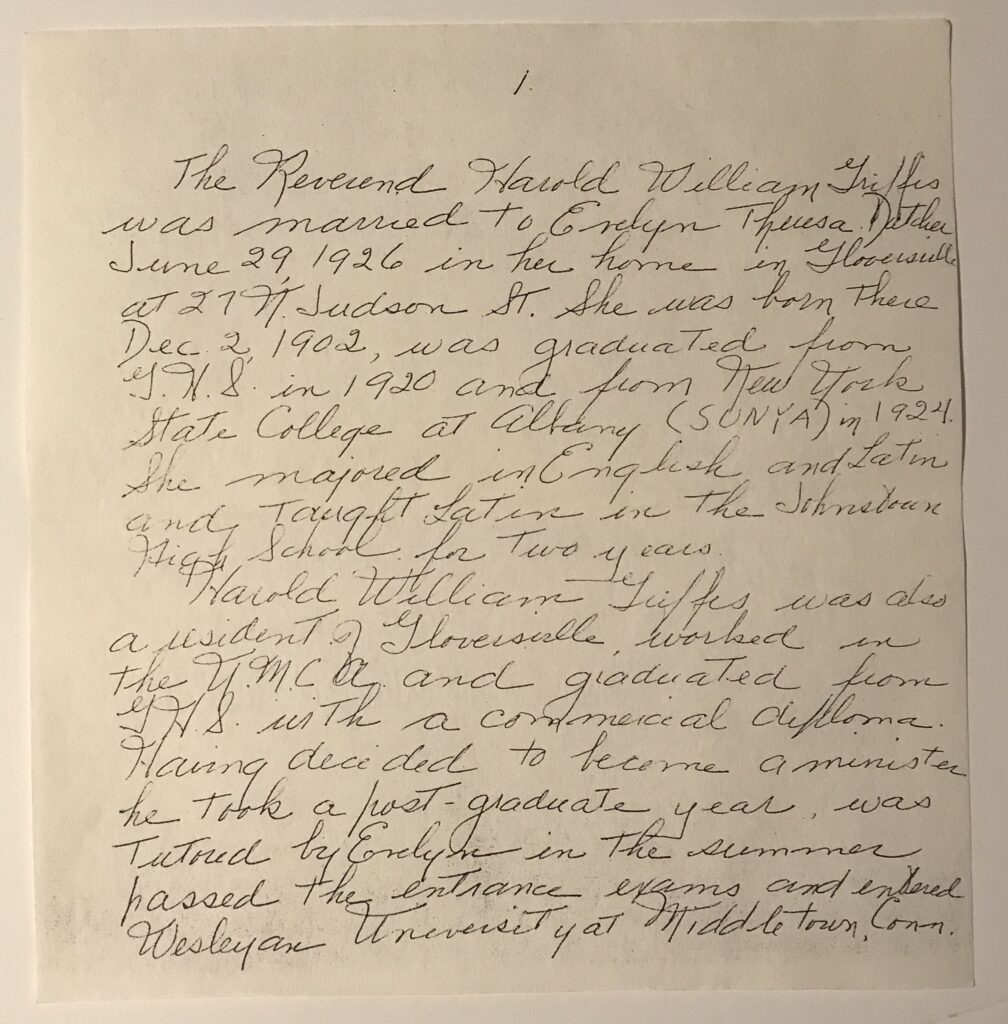 1.
The Reverend Harold William Griffis
was married to Evelyn Theresa Dutcher
June 29, 1926 in her home in Gloversville
at 27 N. Judson St. She was born there
Dec. 2, 1902, was graduated from
G.H.S. in 1920 and from New York
State College at Albany (SUNYA) in 1924.
She majored in English and Latin
and taught Latin in the Johnstown
High School for two years.
Harold William Griffis was also
a resident of Gloversville, worked in
the Y.M.C.A. and graduated from
G.H.S. with a commercial diploma.
Having decided to become a minister
he took a post-graduate year, was
tutored by Evelyn in the summer
passed the entrance exams and entered
Wesleyan University at Middletown, Conn.